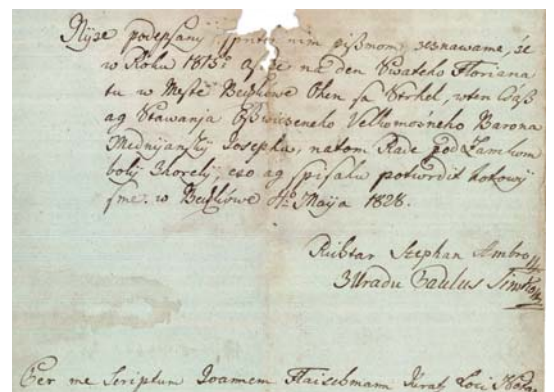 Nijze podepsany pritomnim pißmom seznawame, že
w Roku 1813º na den Swateho Floriana
tu w Meste Beczkowe Ohen sa Strhel, wten čas
ag Stawanja Oßwiceneho Velkomožneho Barona
Mednijanský Josepha, natom Rade pod Zamkom
bolý Zhorely, czo ag spisalu potwrdit hotowý
sme. w Beczkowe Maija 1828.
Richtar Stephan Ambro
Zuradu Paulus Simko
Per me Scriptum Joannem Flaischmann Jurat. Loci Notar